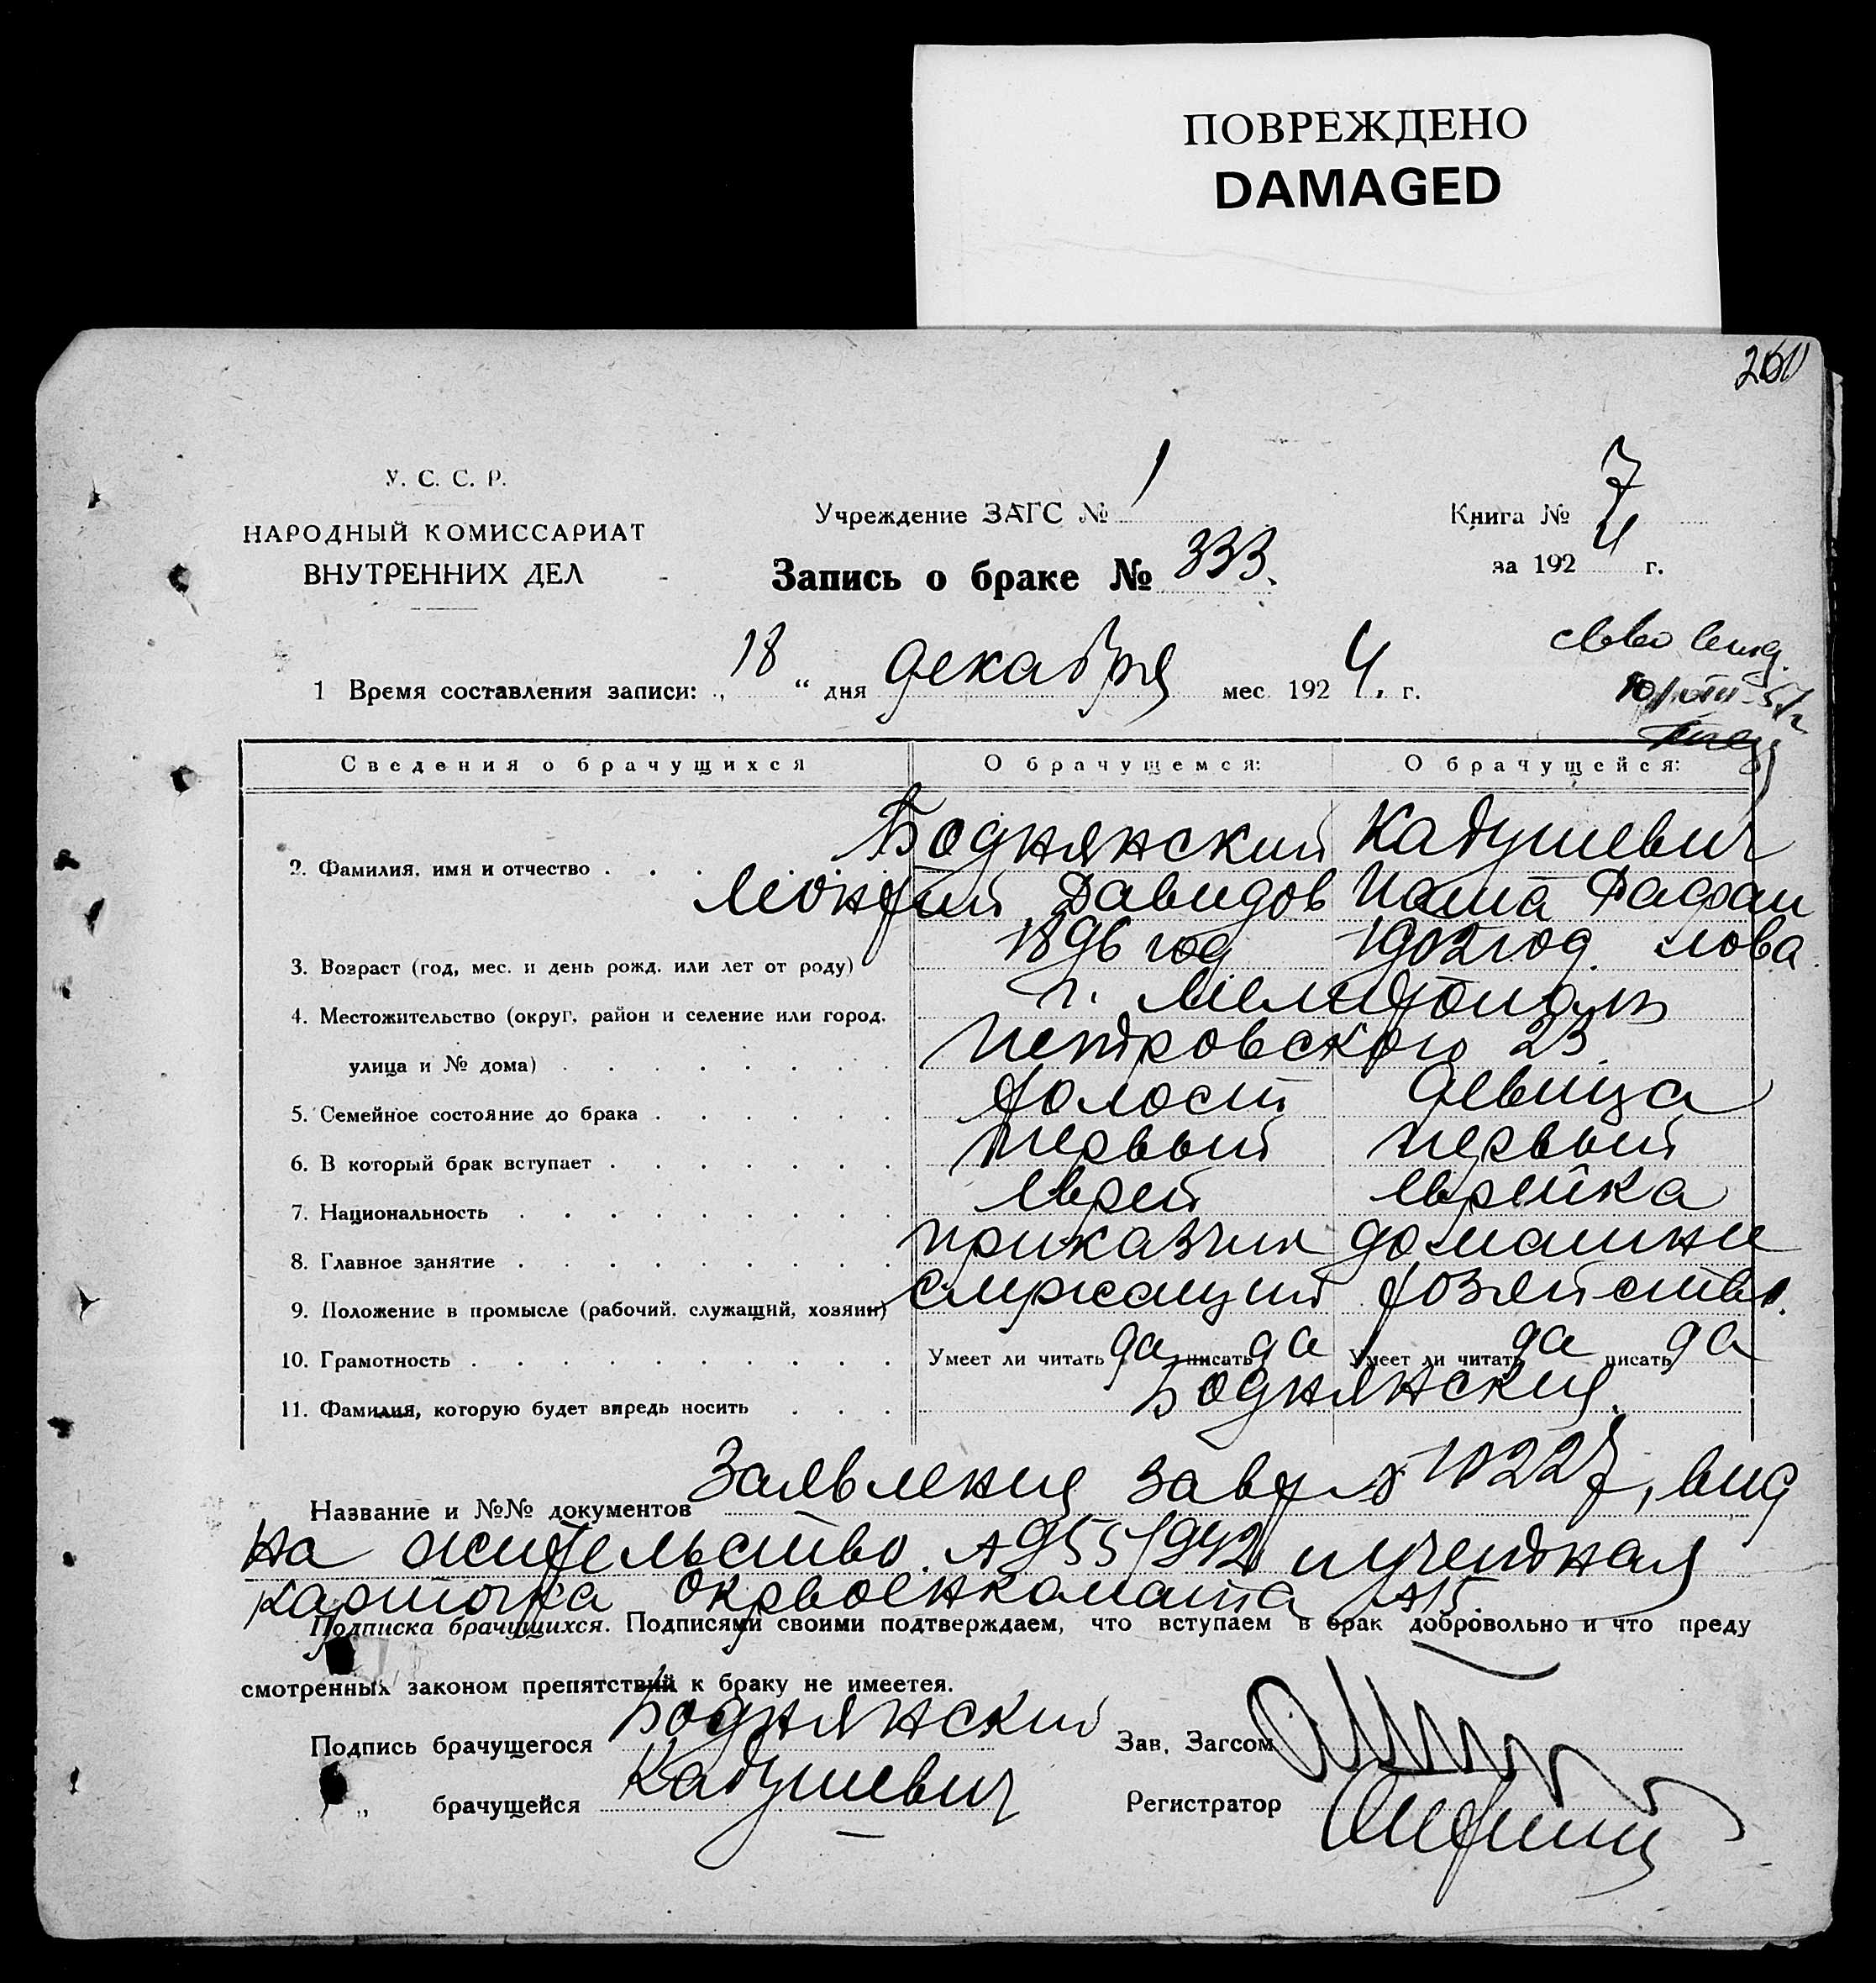 ПОВРЕЖДЕНО
DAMAGED
260
У. С. С. Р.
НАРОДНЫЙ КОМИССАРИАТ
ВНУТРЕННИХ ДЕЛ
Учреждение ЗАГС № 1
Запись о браке № 333.
Книга № 7
за 1924 г.
1 Время составления записи: „18“ дня декабря мес 1924. г.
Сведения о брачущихся О брачущемся: О брачущейся:
2. Фамилия, имя и отчество . . . Боднянский Кадушевич
Леонтий Давидов
3. Возраст (год, мес. и день рожд. или лет от роду) 1896 год 1902 год. лова
4. Местожительство (округ, район и селение или город, г.
улица и № дома) . . . . . . . Петровского 23.
5. Семейное состояние до брака . . . . . холост девица
6. В который брак вступает . . . . . . первый первый
7. Национальность . . . . . . . . еврей еврейка
8. Главное занятие . . . . . . . . приказчик домашнее
9. Положение в промысле (рабочий, служащий, хозяин) служащий хозяйство.
10. Грамотность . . . . . . . . . Умеет ли читать да писать да Умеет ли читать да писать да
11. Фамилия, которую будет впредь носить . . . Боднянския.
Название и №№ документов Заявления завер 10227, вид
на жительство. 955/942 и учетная
карточка окрвоенкомата
Подписка брачущихся. Подписями своими подтверждаем, что вступаем в брак добровольно и что преду
смотренных законом препятствий к браку не имеется.
Подпись брачущегося Боднянский Зав. Загсом
„ брачущейся Кадушевич Регистратор